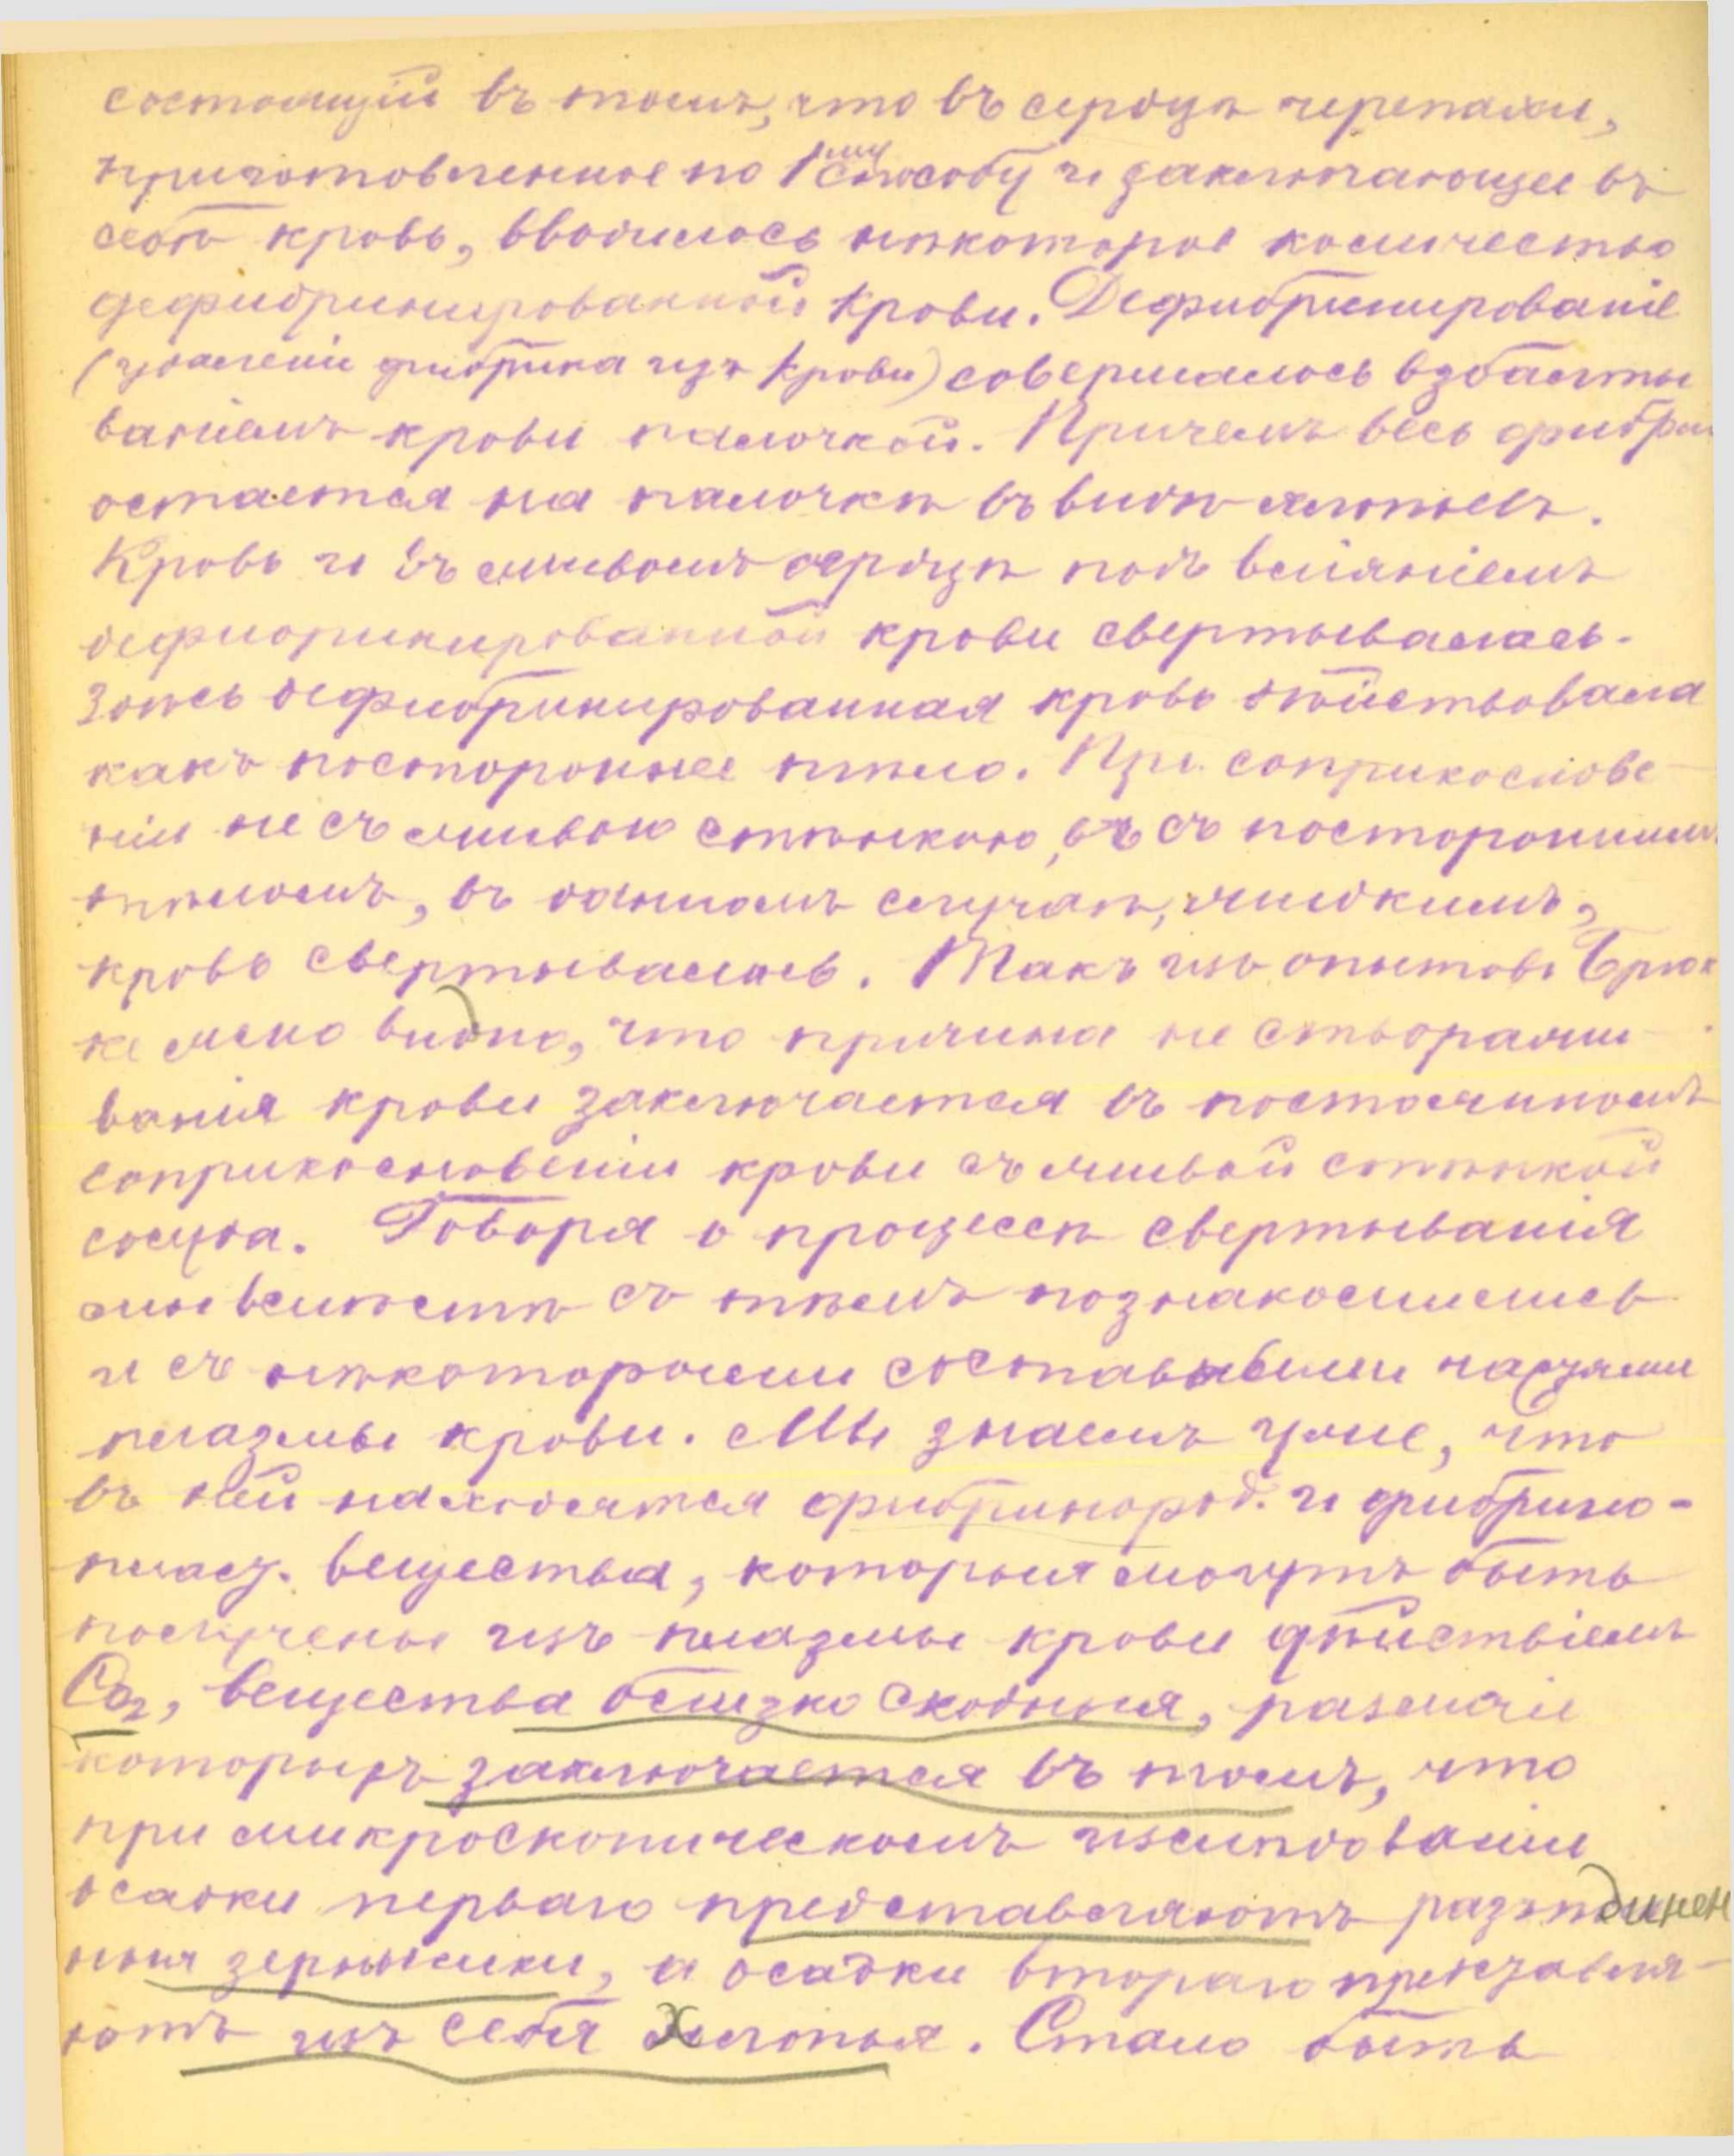 состоящій въ томъ, что въ сердцѣ черепахи,
приготовленное по 1му способу и заключающее въ
себѣ кровь, вводилось нѣкоторое количество
дефибринированной крови. Дефибринированіе
(удаленіе фибрина изъ крови) совершалось взбалты
ваніемъ крови палочкой. Причемъ весь фибрин
остается на палочкѣ въ видѣ хлопьевъ.
Кровь и въ живомъ сердцѣ подъ вліяніемъ
дефибринированной крови свертывалась.
Здѣсь дефибринированная кровь дѣйствовала
какъ постороннее тѣло. При соприкоснове-
ніи не съ живою стѣнкою, съ постороннимъ
тѣломъ, въ данномъ случаѣ, жидкимъ,
кровь свертывалась. Такъ изъ опытовъ Брюк
ке ясно видно, что причина не створажи-
ванія крови заключается въ постоянномъ
соприкосновеніи крови съ живой стѣнкой
сосуда. Говоря о процессѣ свертыванія
мы вмѣстѣ съ тѣмъ познакомились
и съ нѣкоторыми составными частями
плазмы крови. Мы знаемъ уже, что
въ ней находятся фибринород. и фибрино-
пласт. вещества, которыя могутъ быть
получены изъ плазмы крови дѣйствіемъ
Co2, вещества близко сходныя, различіе
которыхъ заключается въ томъ, что
при микроскопическомъ изслѣдованіи
осадки перваго представляютъ разъединен
ныя зернышки, а осадки втораго представля-
ютъ изъ себя хлопья. Стало быть